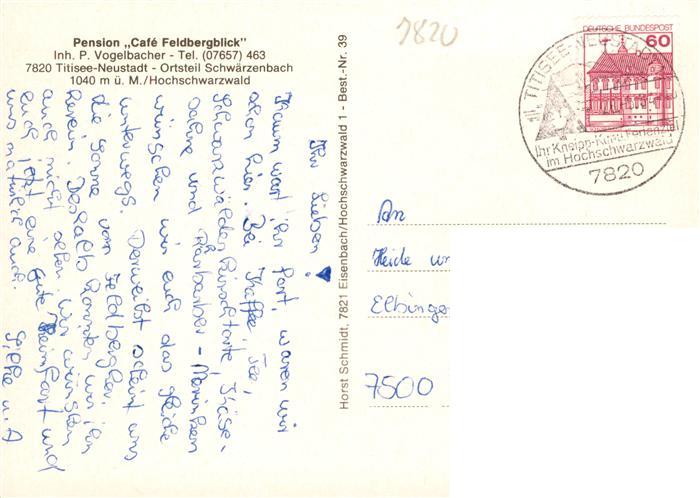 Pension „Café Feldbergblick"
Inh. P. Vogelbacher - Tel. (07657) 463
7820 Titisee-Neustadt - Ortsteil Schwärzenbach
1040 m ü. M./Hochschwarzwald
7820
DEUTSCHE BUNDESPOST
60
TITISEE-NEUSTADT
Ihr Kneipp-Kur u. Ferienziel
im Hochschwarzwald
7820
Horst Schmidt, 7821 Eisenbach/Hochschwarzwald 1 - Best.-Nr. 39
Ihr Lieben!
Kaum wart ihr fort, waren wir
schon hier. Bei Kaffee, Tee,
Schwarzwälder Kirschtorte, Käse-
sahne und Rhabarber-
wünschen wir euch das gleiche
unterwegs. Derweilst scheint uns
die Sonne vom Feldberg her
herein. Deshalb können wir ihn
auch nicht sehen. Wir wünschen
euch jetzt eine gute Heimfart und
uns natürlich auch.
An
Heide un
Elbinge
7500